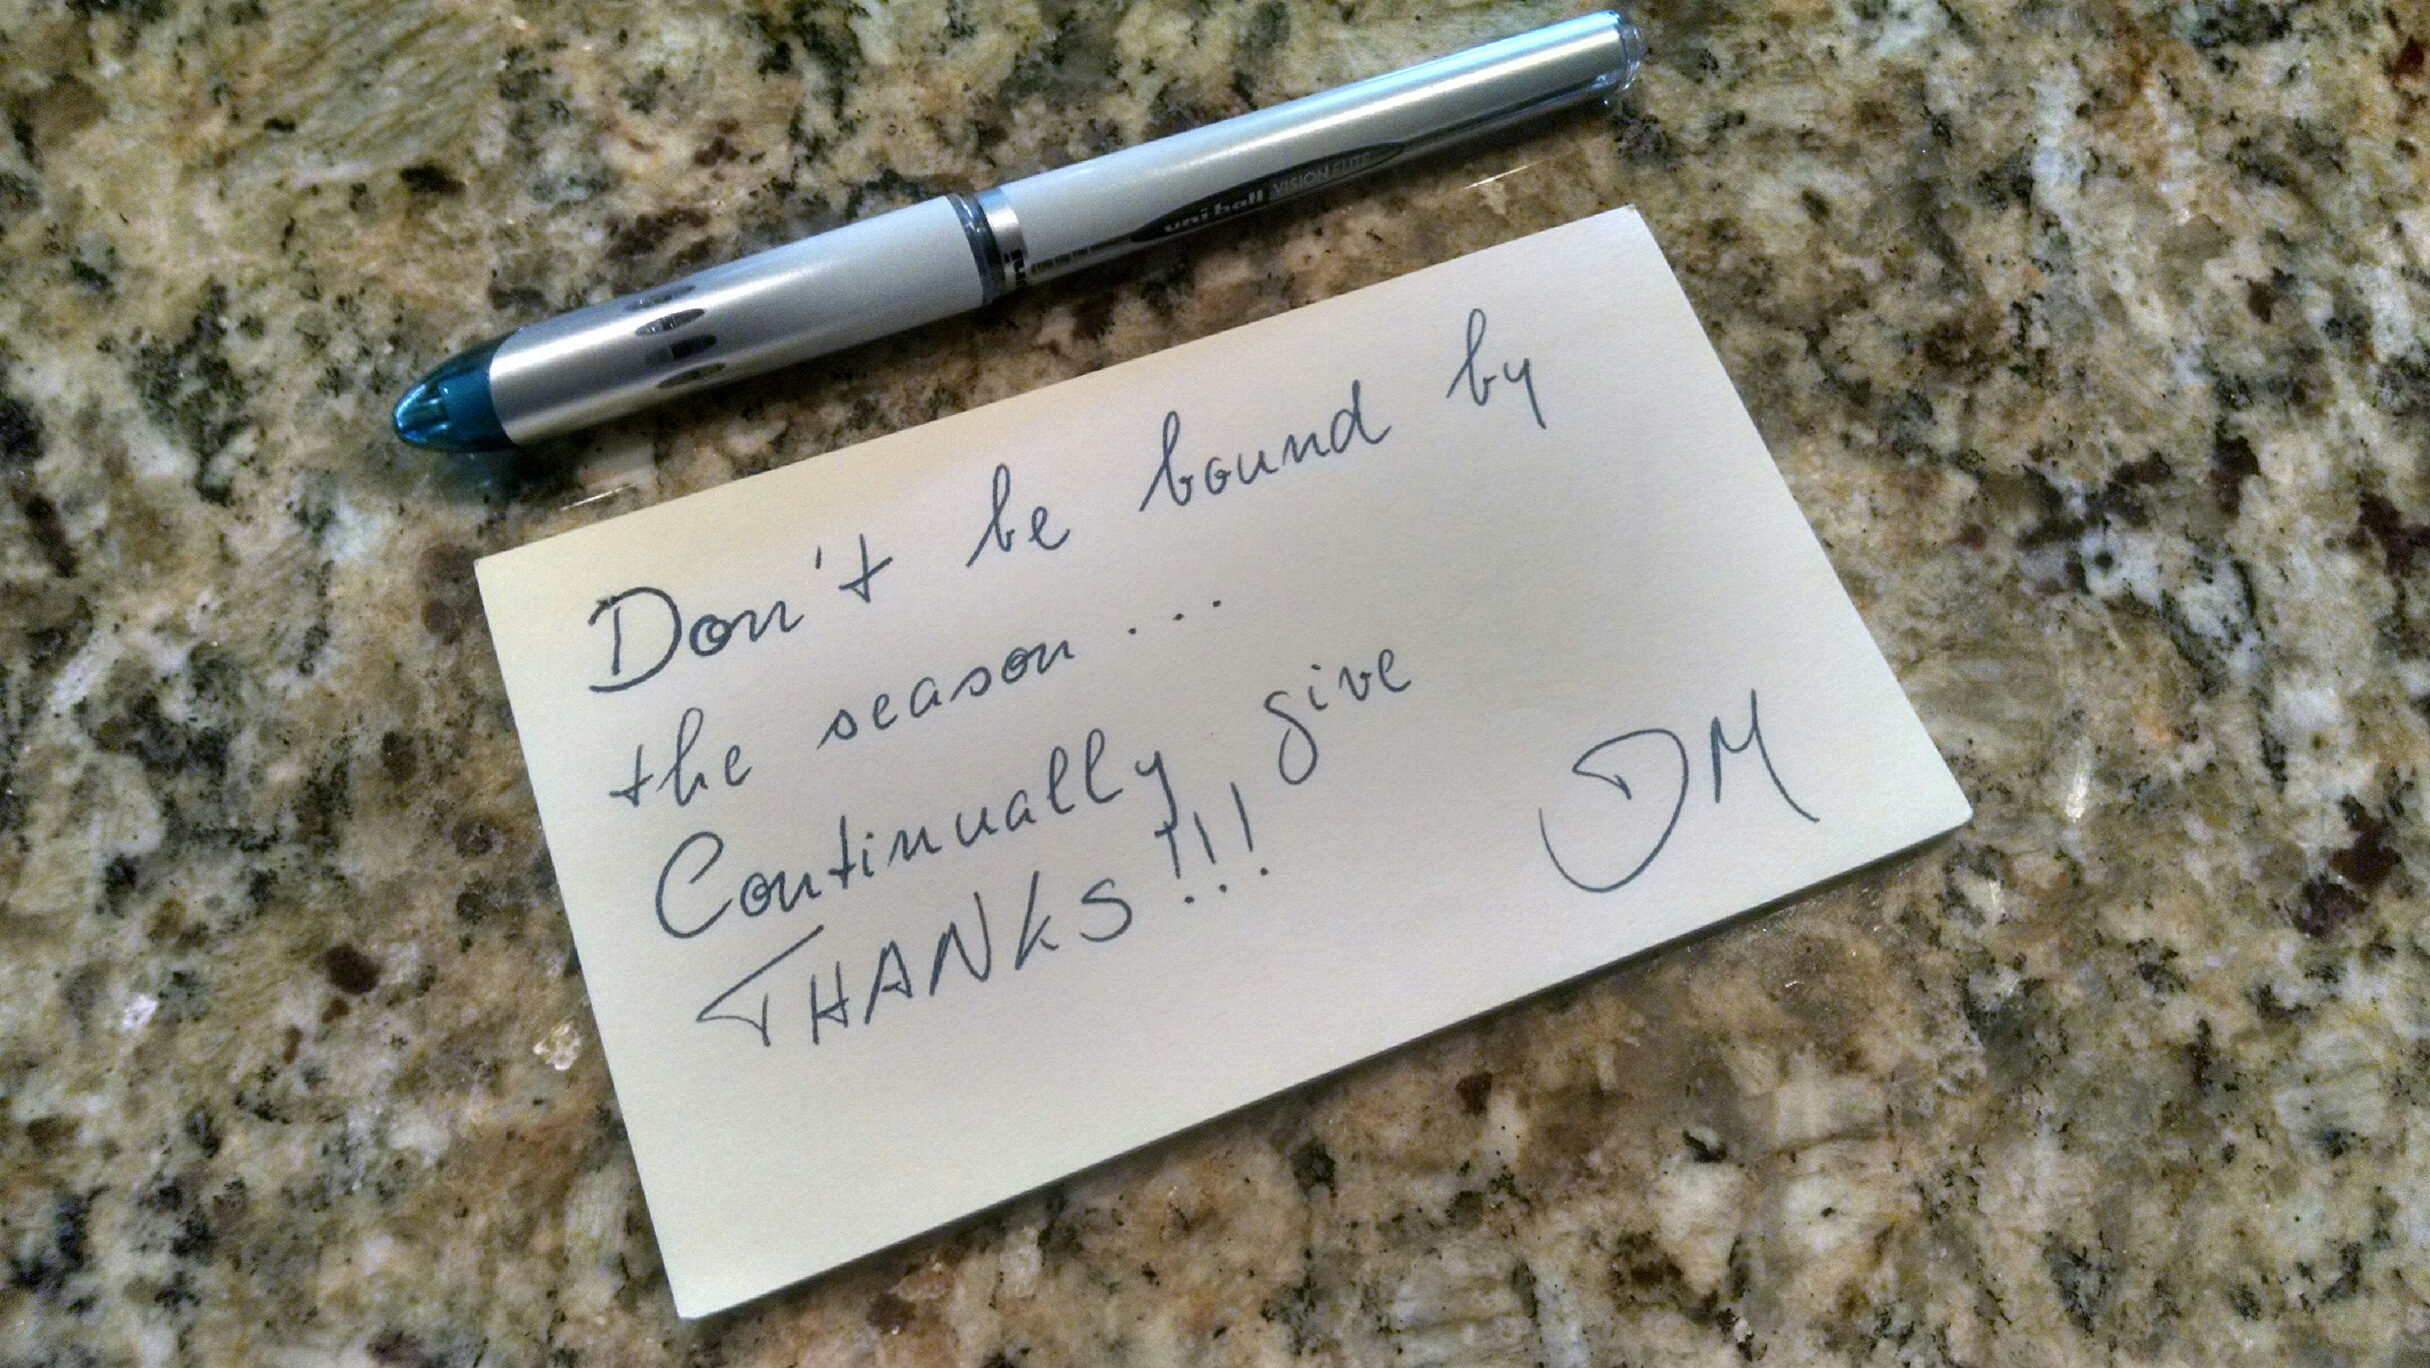 uni-ball VISION ELITE
uni
Don't be bound by
the season...
Continually give
THANKS!!!
DM